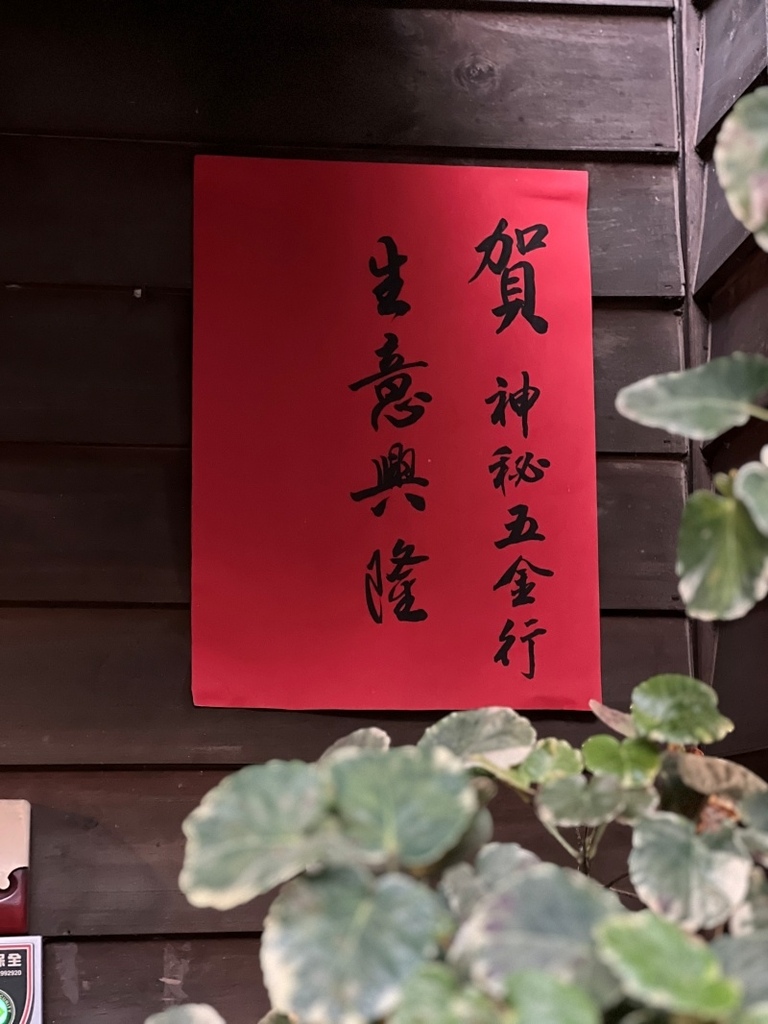 賀 神秘五金行
生意興隆
保全
992920